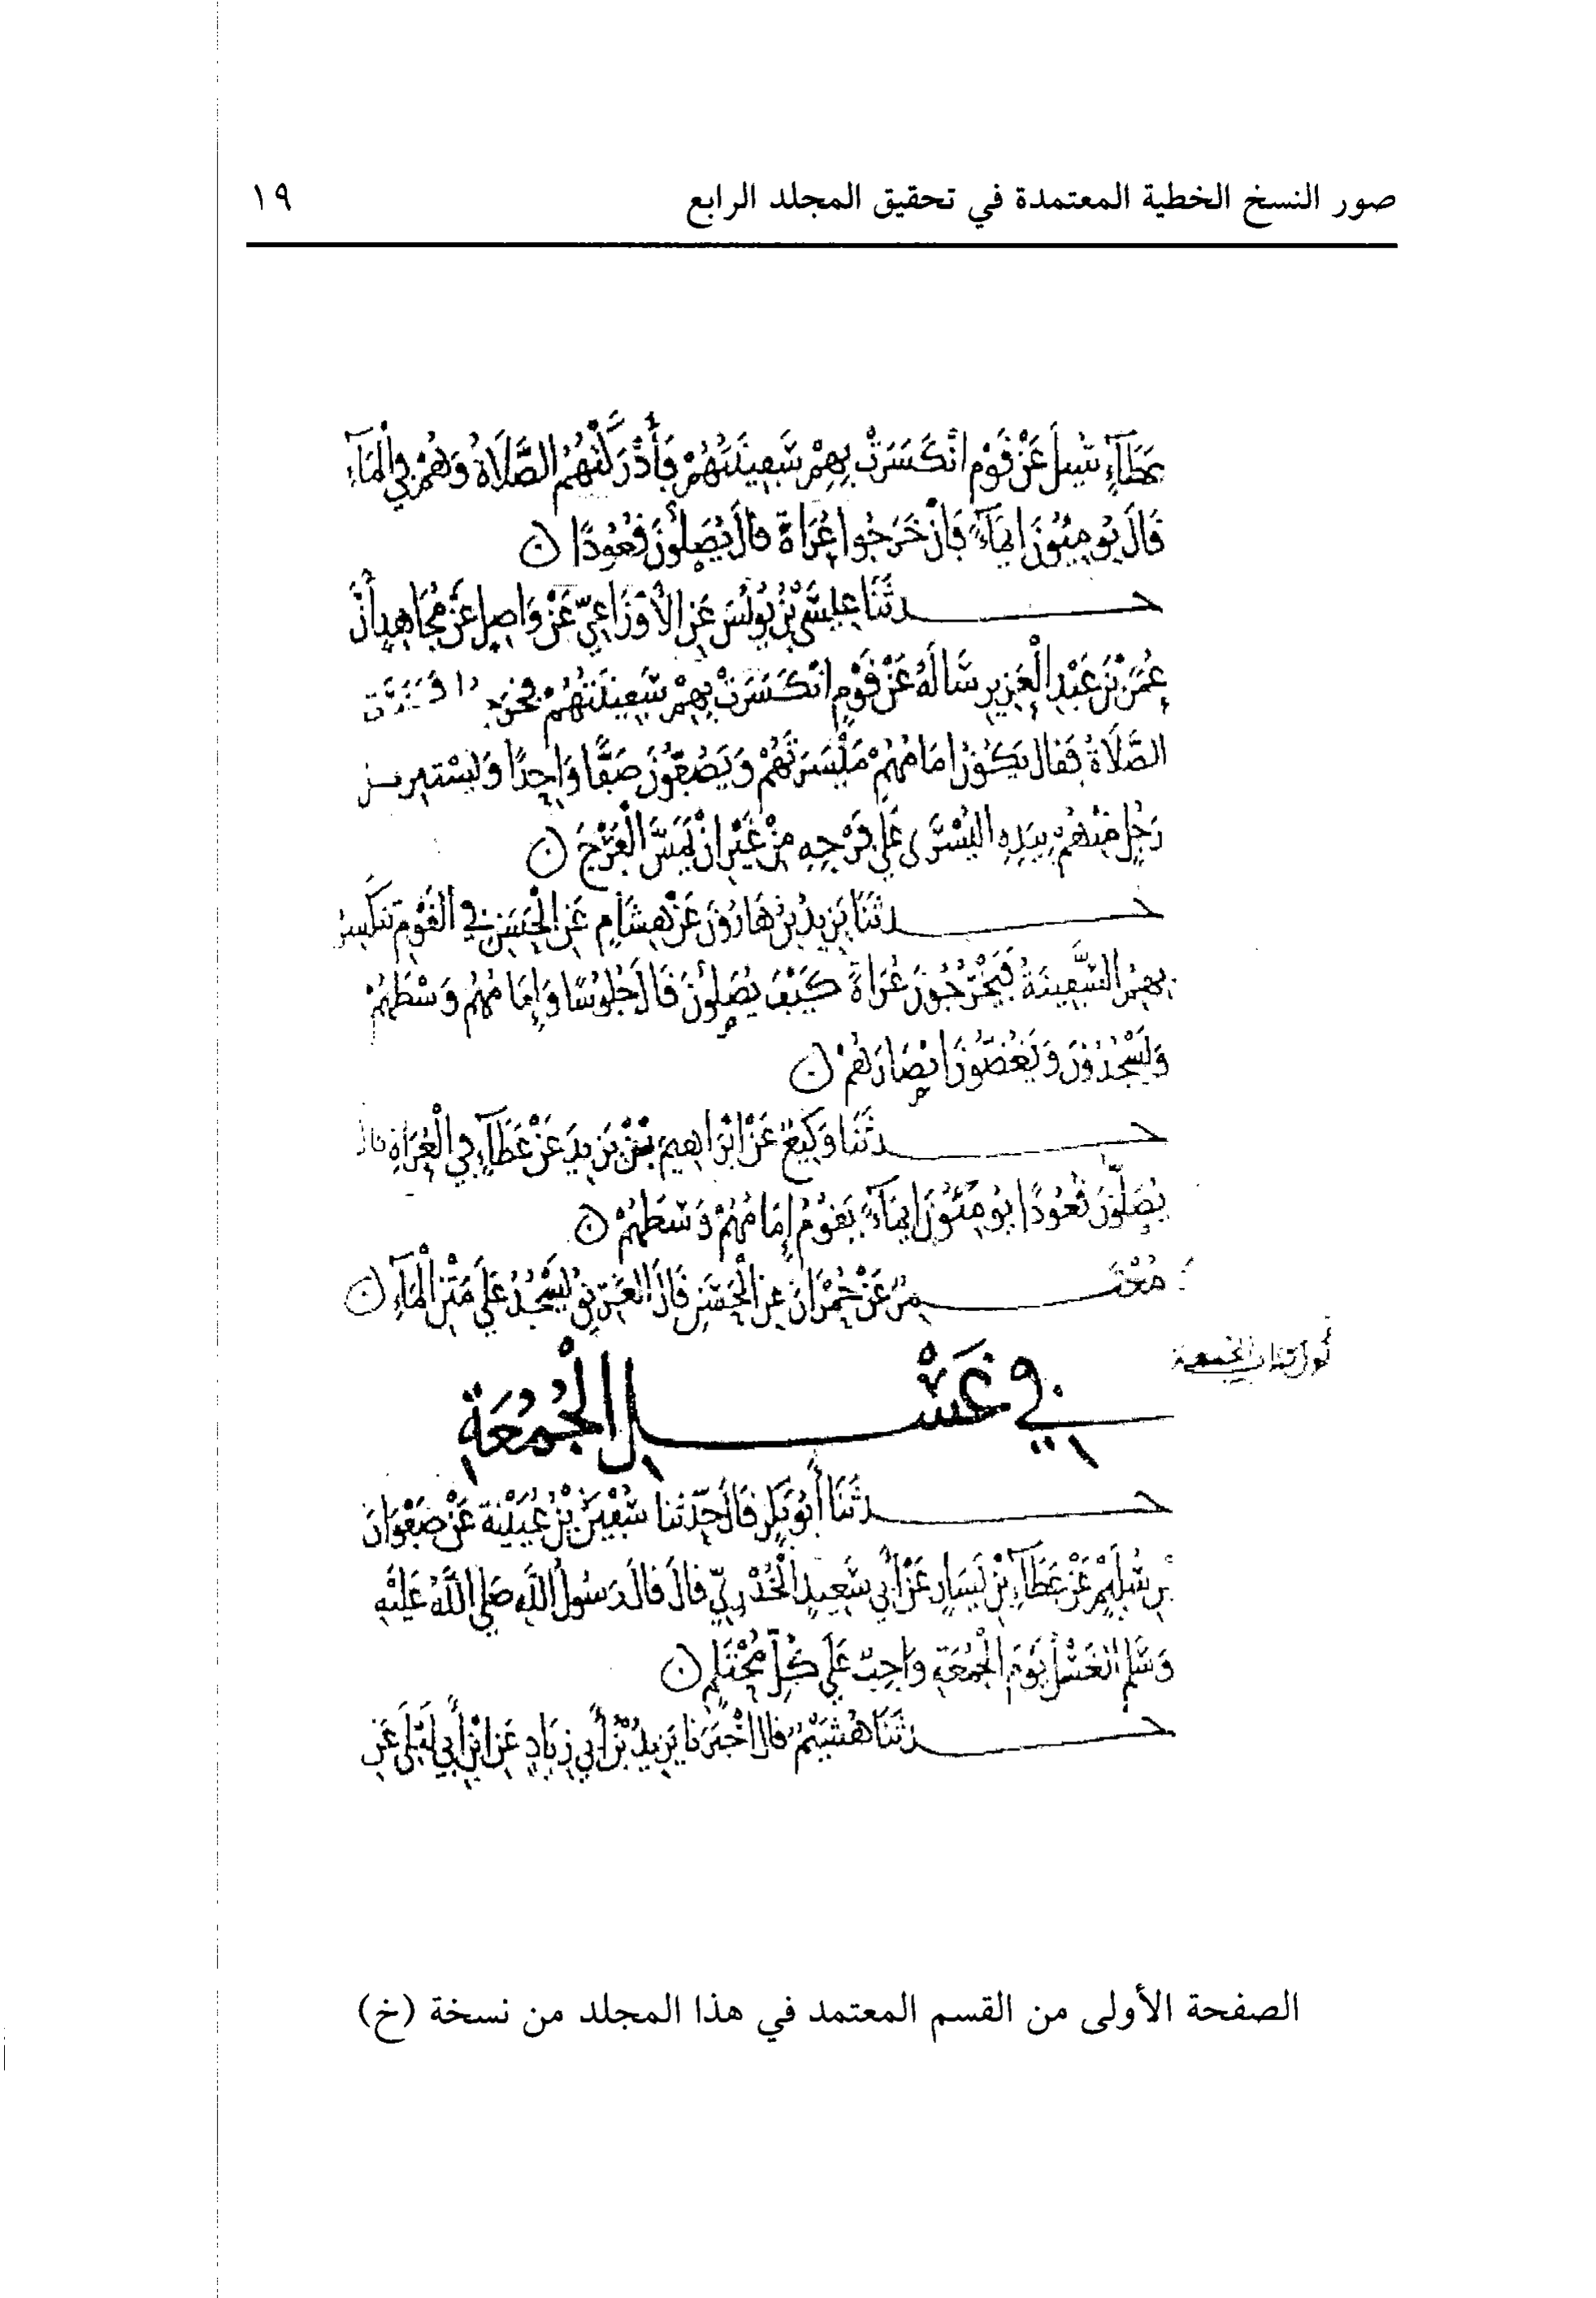 صور النسخ الخطية المعتمدة في تحقيق المجلد الرابع ١٩
عَطَآءٍ سُيلَ عَنْ قَوْمٍ انْكَسَرَتْ بِهِمْ سَفِينَتُهُمْ فَأَدْرَكَتْهُمُ الصَّلَاةُ وَهُمْ فِي الْمَآءِ
قَالَ يُومِئُونَ اِيمَآءً فَاِنْ خَرَجُوا عُرَاةً قَالَ يُصَلُّونَ قُعُودًا
حــدثَنَا عِيسَى بْنُ يُونُسَ عَنِ الْأَوْزَاعِيِّ عَنْ وَاصِلٍ عَنْ مُجَاهِدٍ أَنَّ
عُمَرَ بْنَ عَبْدِ الْعَزِيزِ سَأَلَهُ عَنْ قَوْمٍ انْكَسَرَتْ بِهِمْ سَفِينَتُهُمْ
الصَّلَاةُ فَقَالَ يَكُونُ اِمَامُهُمْ مَيْسَرَتَهُمْ وَيَصُفُّونَ صَفًّا وَاحِدًا وَيَسْتَتِرُ كــل
رَجُلٍ مِنْهُمْ بِيَدِهِ الْيُسْرَى عَلَى فَرْجِهِ مِنْ غَيْرِ اَنْ يَمَسَّ الْفَرْجَ
حــدثَنَا يَزِيدُ بْنُ هَارُونَ عَنْ هِشَامٍ عَنِ الْحَسَنِ فِي الْقَوْمِ تَنْكَسِرُ
بِهِمُ السَّفِينَةُ فَيَخْرُجُونَ عُرَاةً كَيْفَ يُصَلُّونَ قَالَ جُلُوسًا وَإِمَامُهُمْ وَسْطَهُمْ
وَيَسْجُدُونَ وَيَغُضُّونَ اَبْصَارَهُمْ
حــدثَنَا وَكِيعٌ عَنْ اِبْرَاهِيمَ بْنِ يَزِيدَ عَنْ عَطَآءٍ فِي الْعُرَاةِ قال
يُصَلُّونَ قُعُودًا يُومِئُونَ اِيمَآءً يَقُومُ إِمَامُهُمْ وَسَطَهُمْ
مُعْتَــمِرٌ عَنْ حُمْرَانَ عَنِ الْحَسَنِ قَالَ الْغَرِيقُ يَسْجُدُ عَلَى مَتْنِ الْمَآءِ
أول كتاب الجمعة
فِي غُسْــلِ الْجُمُعَةِ
حــدثَنَا أَبُو بَكْرٍ قَالَ حَدَّثنا سُفْيَنُ بْنُ عُيَيْنَةَ عَنْ صَفْوَانَ
بْنِ سُلَيْمٍ عَنْ عَطَآءِ بْنِ يَسَارٍ عَنْ أَبِي سَعِيدٍ الْخُدْرِيِّ قَالَ قَالَ رَسُولُ اللَّهِ صَلَى اللَّهُ عَلَيْهِ
وَسَلم الْغُسْلُ يَوْمَ الْجُمُعَةِ وَاجِبٌ عَلَى كُلِّ مُحْتَلِمٍ
حــدثَنَا هُشَيْمٌ قال اَخْبَرَنَا يَزِيدُ بْنُ أَبِي زِيَادٍ عَنِ ابْنِ أَبِي لَيْلَى عَنِ
الصفحة الأولى من القسم المعتمد في هذا المجلد من نسخة (خ)